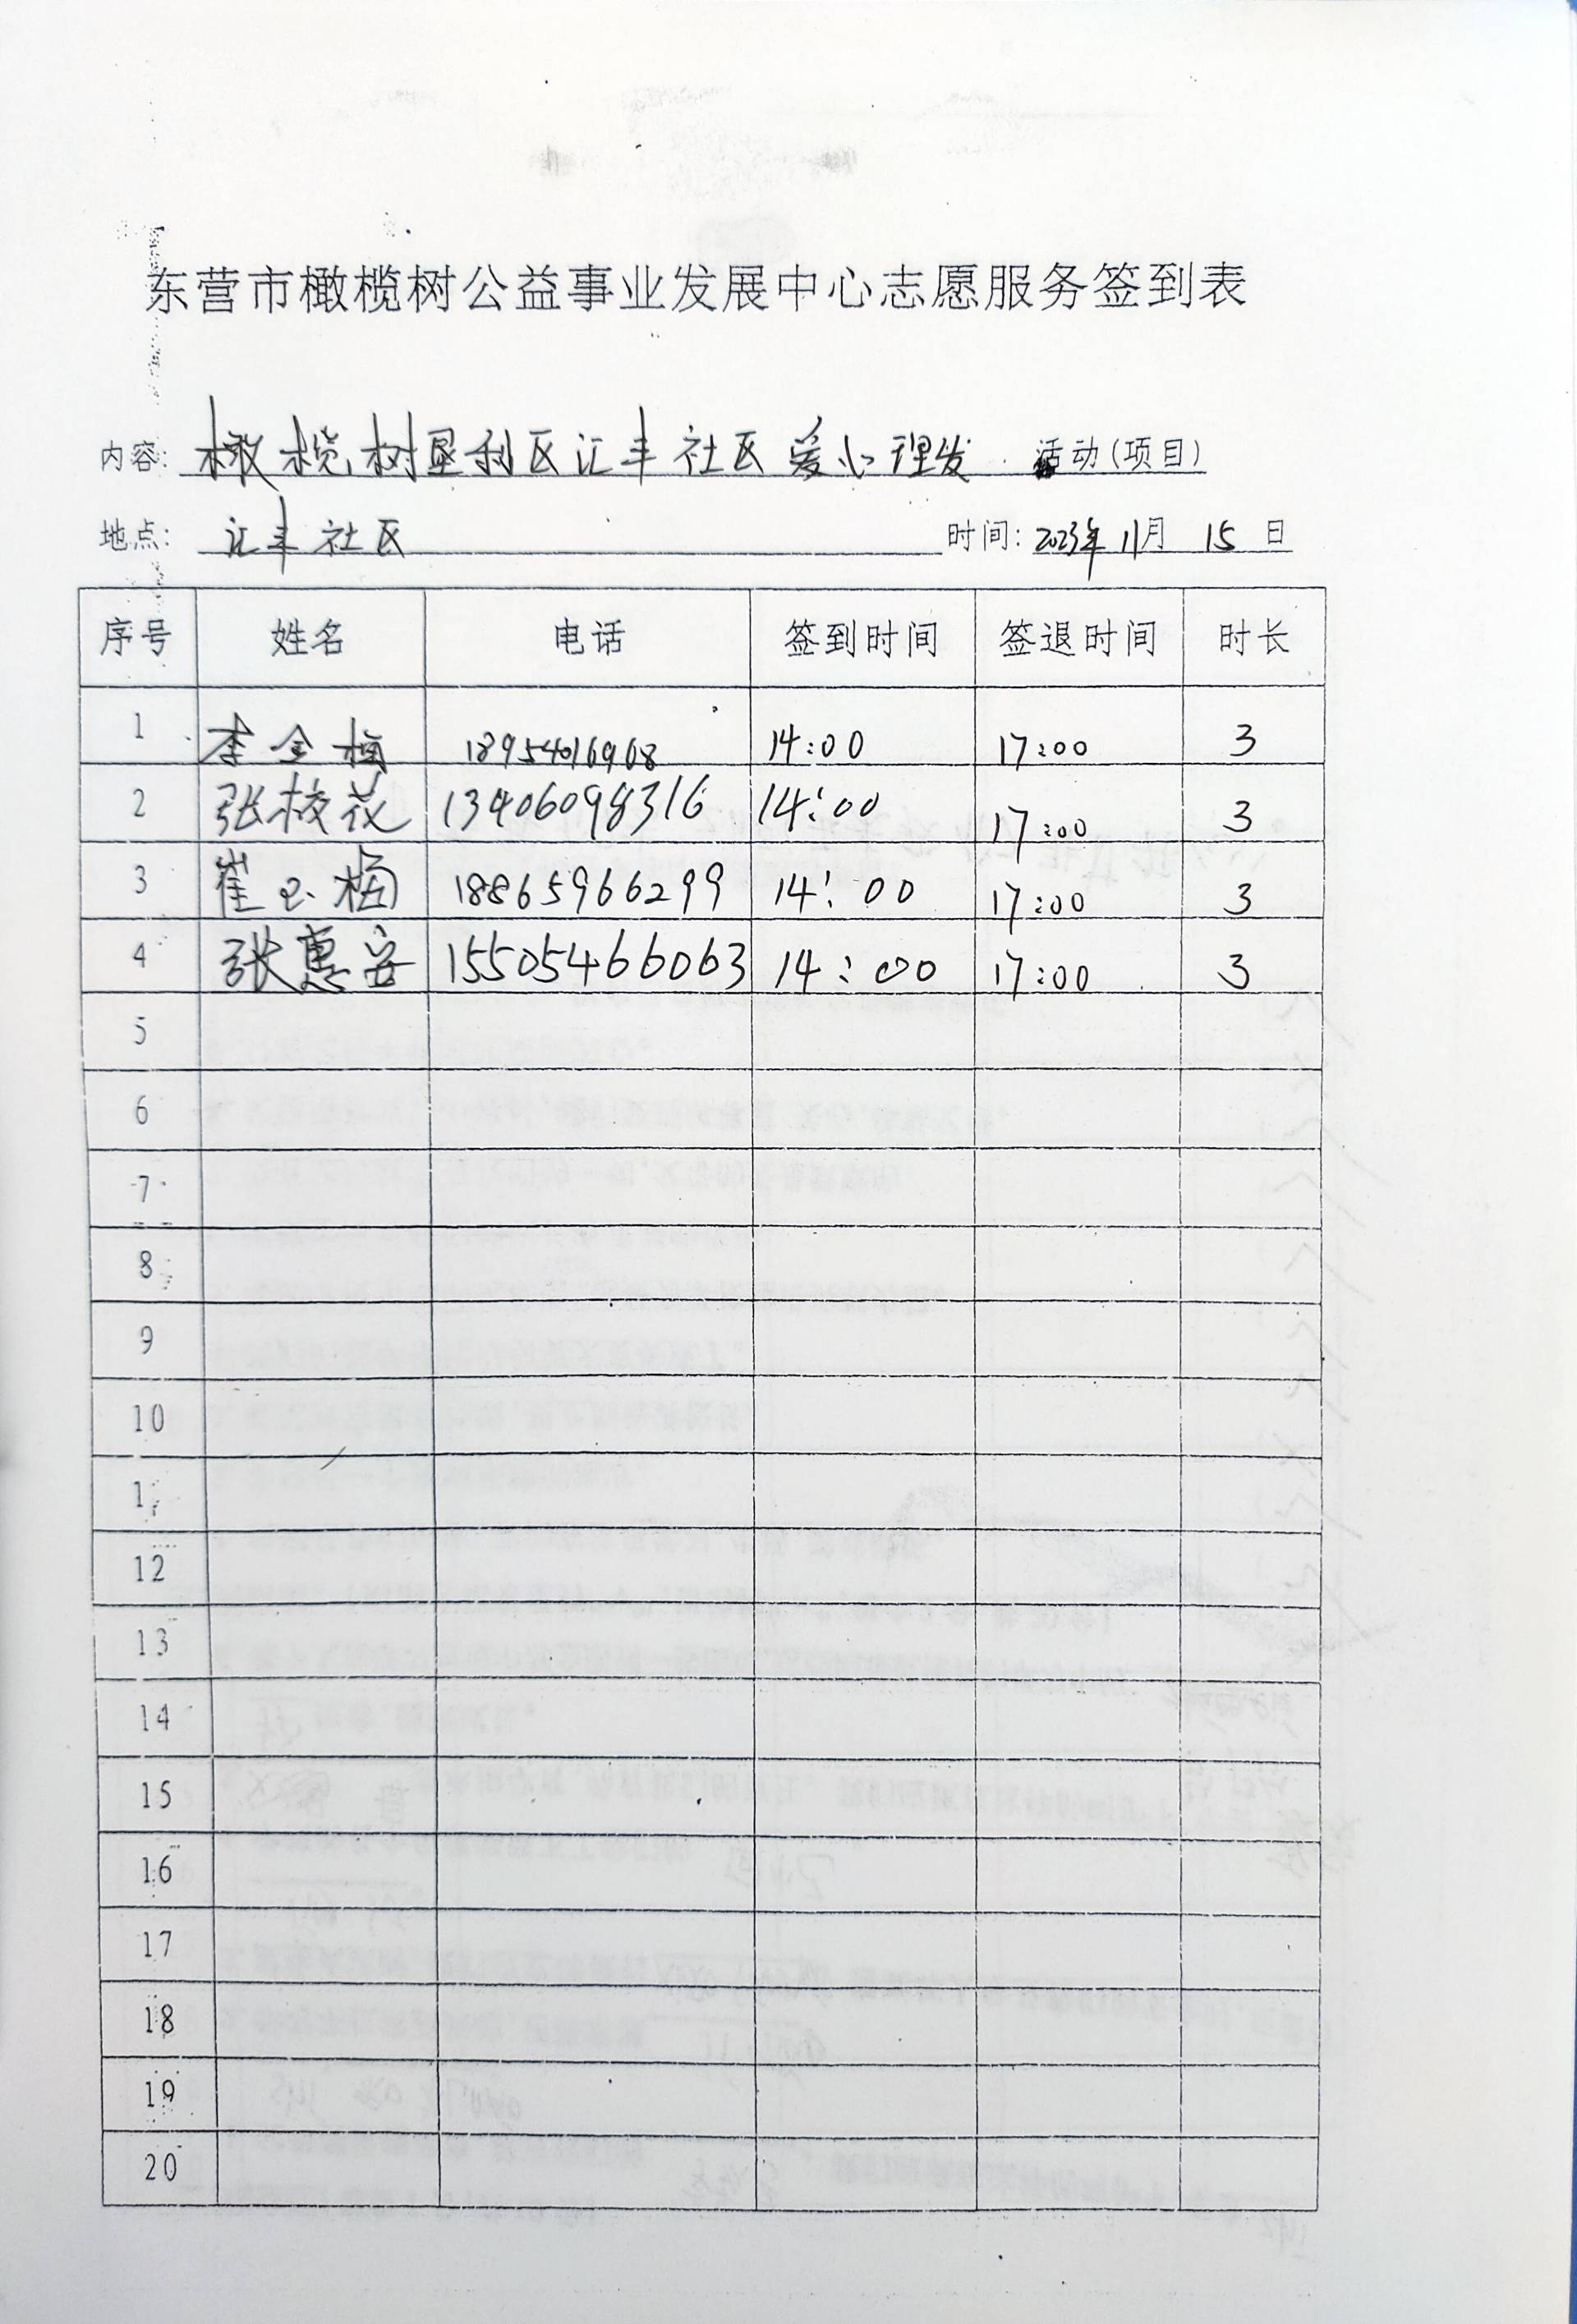 东营市橄榄树公益事业发展中心志愿服务签到表
内容: 橄榄树垦利区汇丰社区爱心理发 活动(项目)
地点: 汇丰社区 时间: 2023年 11月 15 日
序号 姓名 电话 签到时间 签退时间 时长
1 李金梅 18954016968 14:00 17:00 3
2 张枝花 13406098316 14:00 17:00 3
3 崔玉梅 18865966299 14:00 17:00 3
4 张惠安 15505466063 14:00 17:00 3
5
6
7
8
9
10
1
12
13
14
15
16
17
18
19
20